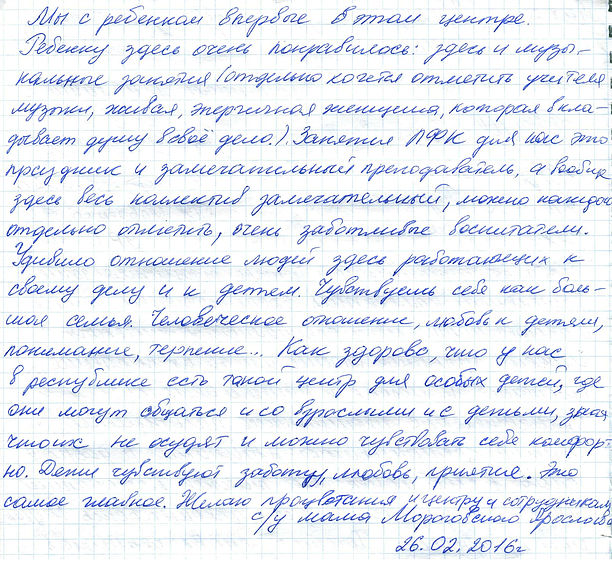 Мы с ребенком впервые в этом центре.
Ребенку здесь очень понравилось: здесь и музы-
кальные занятия (отдельно хочется отметить учителя
музыки, живая, энергичная женщина, которая вкла-
дывает душу в своё дело.). Занятия ЛФК для нас это
праздник и замечательный преподаватель, а вообще
здесь весь коллектив замечательный, можно каждого
отдельно отметить, очень заботливые воспитатели.
Удивило отношение людей здесь работающих к
своему делу и к детям. Чувствуешь себя как боль-
шая семья. Человеческое отношение, любовь к детям,
понимание, терпение... Как здорово, что у нас
в республике есть такой центр для особых детей, где
они могут общаться и со взрослыми и с детьми, зная
что их не осудят и можно чувствовать себя комфорт-
но. Дети чувствуют заботу, любовь, принятие. Это
самое главное. Желаю процветания и центру и сотрудникам
с/у мама Мороговского Ярослава
26.02.2016г